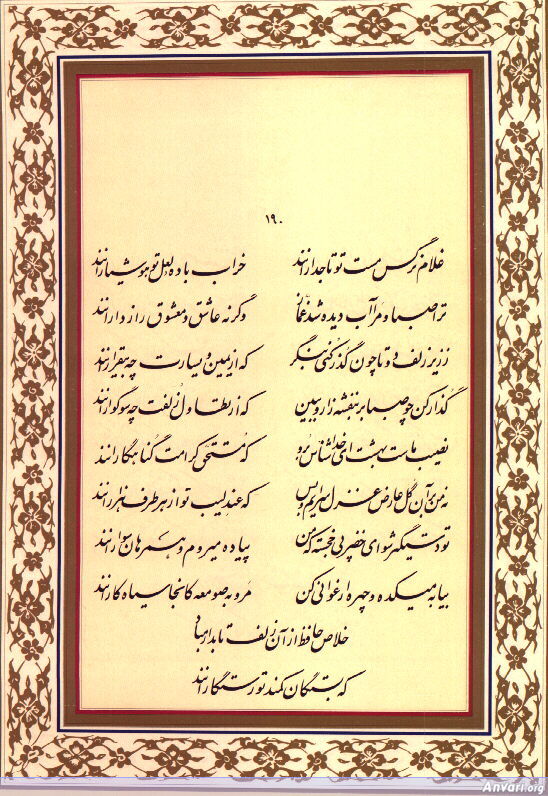 ۱۹۰
غلام نرگس مست تو تاجدارانند خراب باده لعل تو هوشیارانند
ترا صبا و مرا آب دیده شد غماز وگرنه عاشق و معشوق رازدارانند
ز زیر زلف دوتا چون گذر کنی بنگر که از یمین و یسارت چه بیقرارانند
گذار کن چو صبا بر بنفشه زار و ببین که از تطاول زلفت چه سوگوارانند
نصیب ماست بهشت ای خداشناس برو که مستحق کرامت گناهگارانند
نه من بر آن گل عارض غزل سرایم و بس که عندلیب تو از هر طرف هزارانند
تو دستگیر شو ای خضر پی خجسته که من پیاده میروم و همرهان سوارانند
بیا به میکده و چهره ارغوانی کن مرو به صومعه کانجا سیاه کارانند
خلاص حافظ از آن زلف تابدار مباد
که بستگان کمند تو رستگارانند
Anvari.org